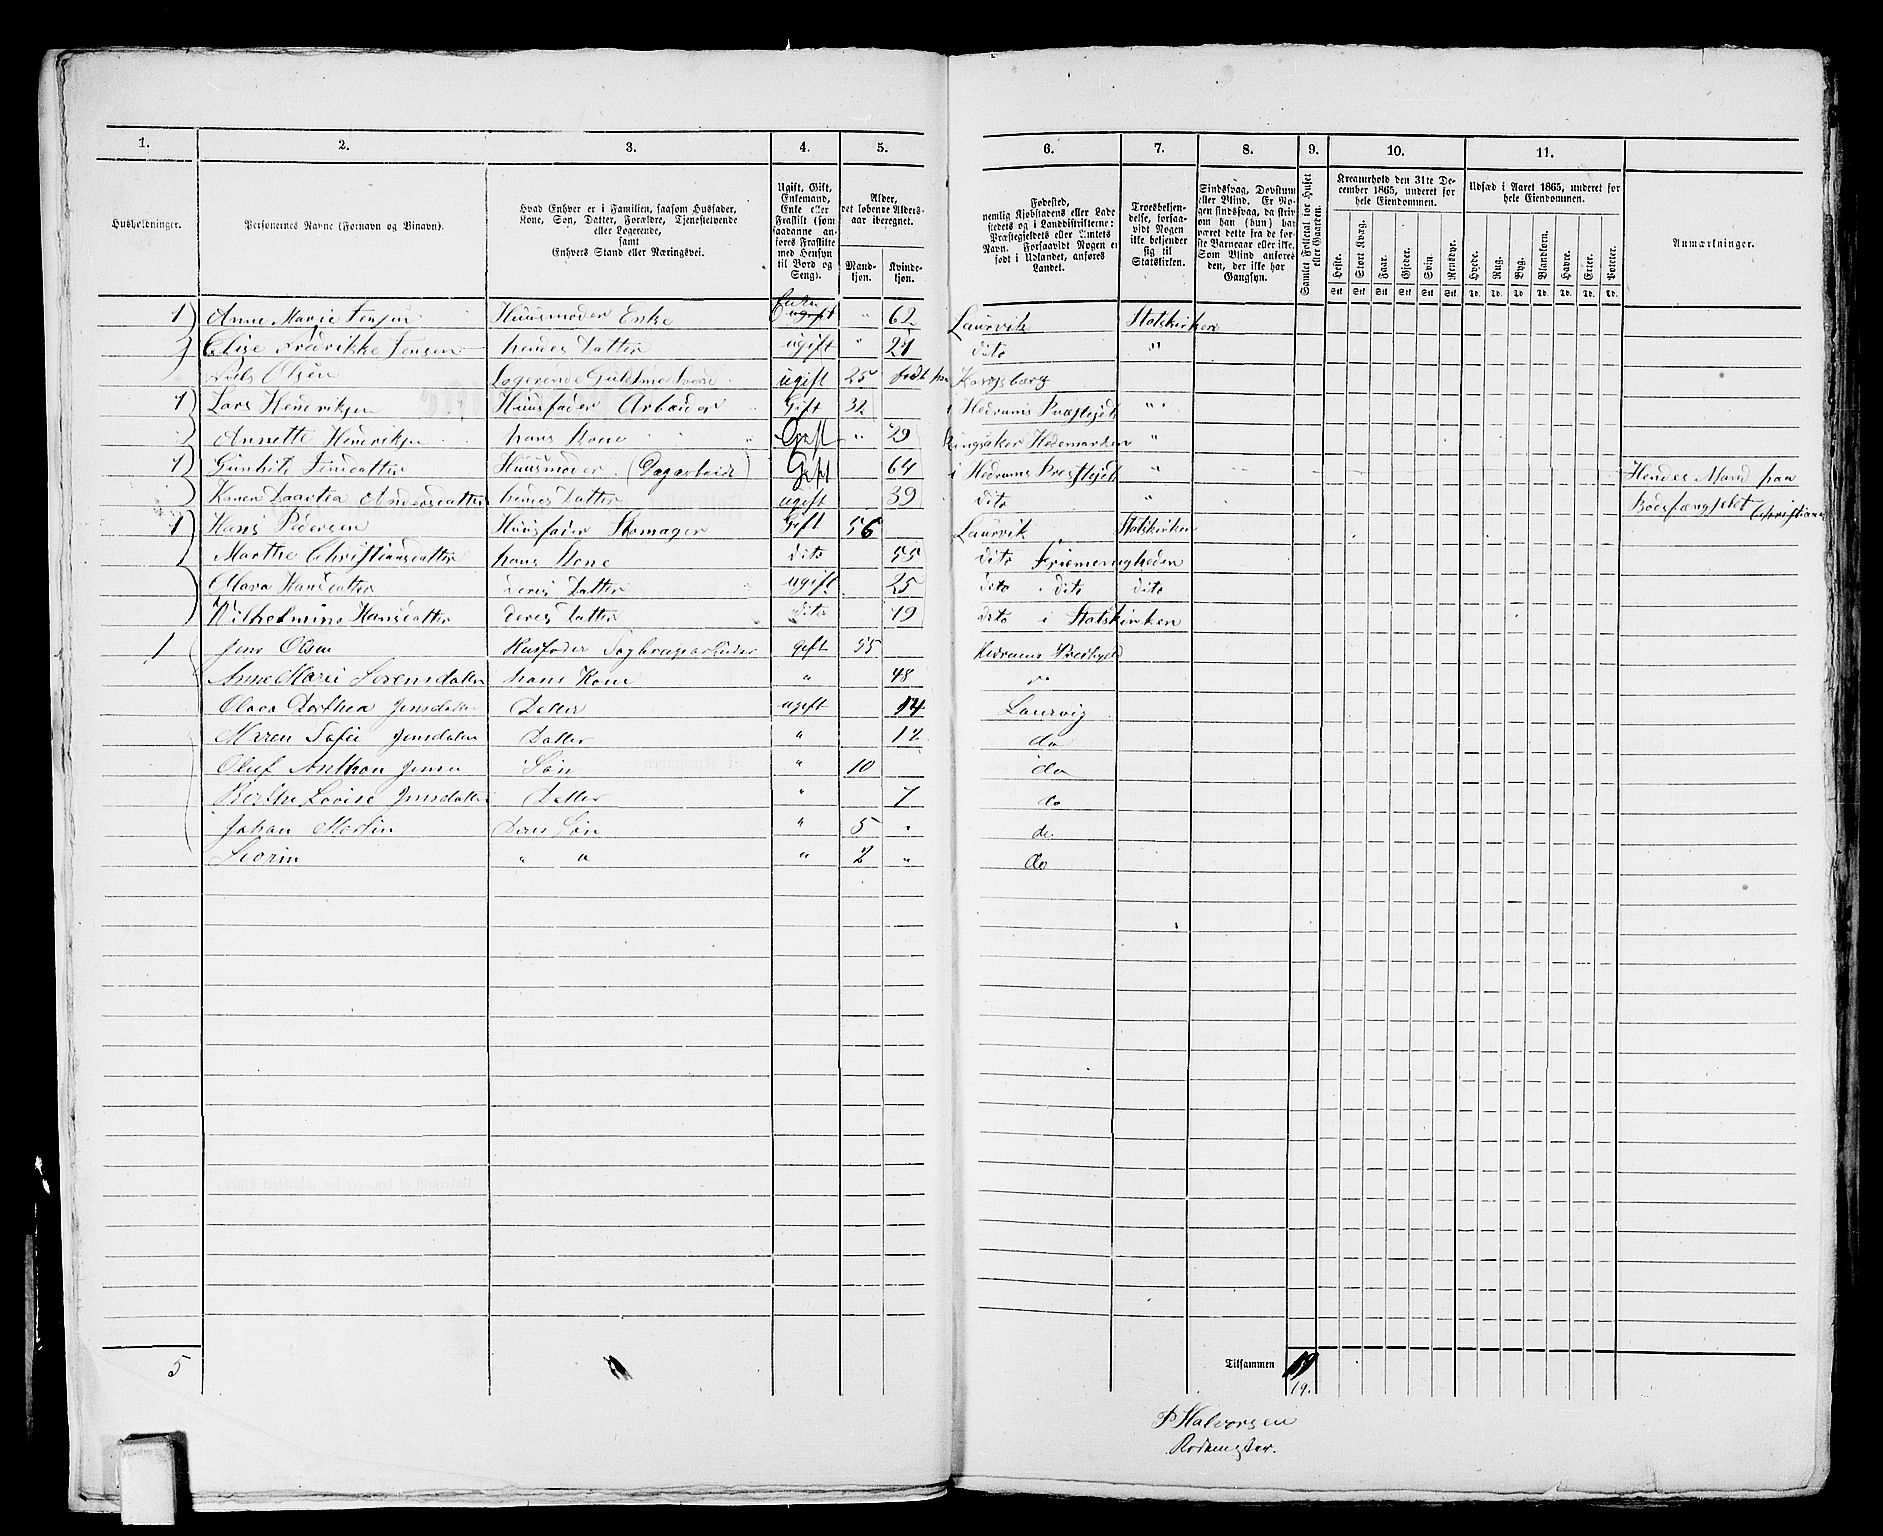 1. 2. 3. 4. 5. 6. 7. 8. 9. 10. 11.
Husholdninger.
Personernes Navne (Fornavn og Binavn).
Hvad Enhver er i Familien, saasom Husfader,
Kone, Søn, Datter, Forældre, Tjenestetyende
eller Logerende,
samt
Enhvers Stand eller Næringsvei.
Ugift, Gift,
Enkemand,
Enke eller
Fraskilt (som
saadanne an-
føres Fraskilte
med Hensyn
til Bord og
Seng).
Alder,
det løbende Alders-
aar iberegnet.
Mand-
kjøn.
Kvinde-
kjøn.
Fødested,
nemlig Kjøbstadens eller Lade
stedets og i Landdistrikterne:
Præstegjeldets eller Amtets
Navn. Forsaavidt Nogen er
født i Udlandet, anføres
Landet.
Troesbekjen-
delse, forsaa-
vidt Nogen
ikke bekjender
sig til
Statskirken.
Sindssvag, Døvstum
eller Blind. Er No-
gen sindssvag, da skriv
om han (hun) har
været dette fra de før-
ste Barneaar eller ikke.
Som Blind anføres
den, der ikke har
Gangsyn.
Samlet Folketal for Huset
eller Gaarden.
Kreaturhold den 31te De-
cember 1865, underet for
hele Eiendommen.
Heste. Stort Kvæg. Faar. Gjeder. Svin. Rensdyr.
Stk Stk Stk Stk Stk Stk
Udsæd i Aaret 1865, underet for
hele Eiendommen.
Hvede. Rug. Byg. Blandkorn. Havre. Erter. Poteter.
Td. Td. Td. Td. Td. Td. Td.
Anmærkninger.
1 Anne Marie Jensen Huusmoder Enke Enke ugift " 62 Laurvik Statskirken
Elise Fredrikke Jensen hendes Datter ugift " 21 dito "
Niels Olsen Logerende Guldsmedsvend ugift 25 født paa Kongsberg
1 Lars Hendriksen Huusfader Arbeider Gift 32 i Hedrums Præstejeld "
Annette Hendriksen hans Kone Gift " 29 Ringsaker Hedemarken "
1 Gunhild Jensdatter Huusmoder (Dagarbeide) Gift 64 i Hedrums Præstejeld " Hendes Mand paa
Karen Daartea Andersdatter hendes Datter ugift 39 dito " Bodsfængselet Christiania
1 Hans Pedersen Huusfader Skomager Gift 56 Laurvik Statskirken
Marthe Christiansdatter hans Kone dito 55 dito Friemenigheden
Mara Hansdatter deres Datter ugift 25 dito dito dito
Wilhelmine Hansdatter deres Datter dito 19 dito i Statskirken
1 Jens Olsen Husfader Sagbrugsarbeider gift 55 Hedrums Prestegjeld
Anne Marie Sørensdatter hans Kone " 48 do
Olava Dorthea Jensdatter Datter ugift 14 Laurvig
Maren Sofie Jensdatter Datter " 12 do
Oluf Anthon Jensen Søn " 10 do
Berthe Lovise Jensdatter Datter " 7 do
Johan Martin Deres Søn " 5 " do.
Severin " " " 2 " do
5
Tilsammen 19
19.
P Halvorsen
Rodemester.